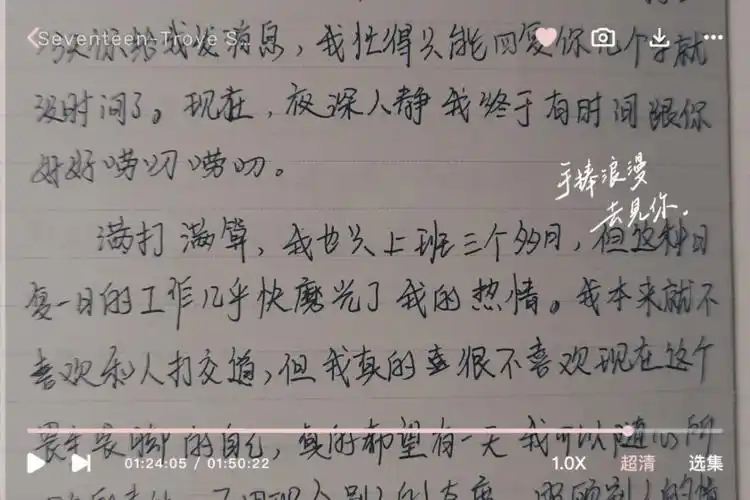 Seventeen-Troye S
给我发消息，我忙得只能回复你几个字就
没时间了。现在，夜深人静我终于有时间跟你
好好唠叨唠叨。
手捧浪漫
去見你.
满打满算，我也只上班三个多月，但这种日
复一日的工作几乎快磨光了我的热情。我本来就不
喜欢和人打交道，但我真的喜很不喜欢现在这个
畏手畏脚的自己，真的希望有一天我可以随心所
01:24:05 / 01:50:22
1.0X
超清
选集